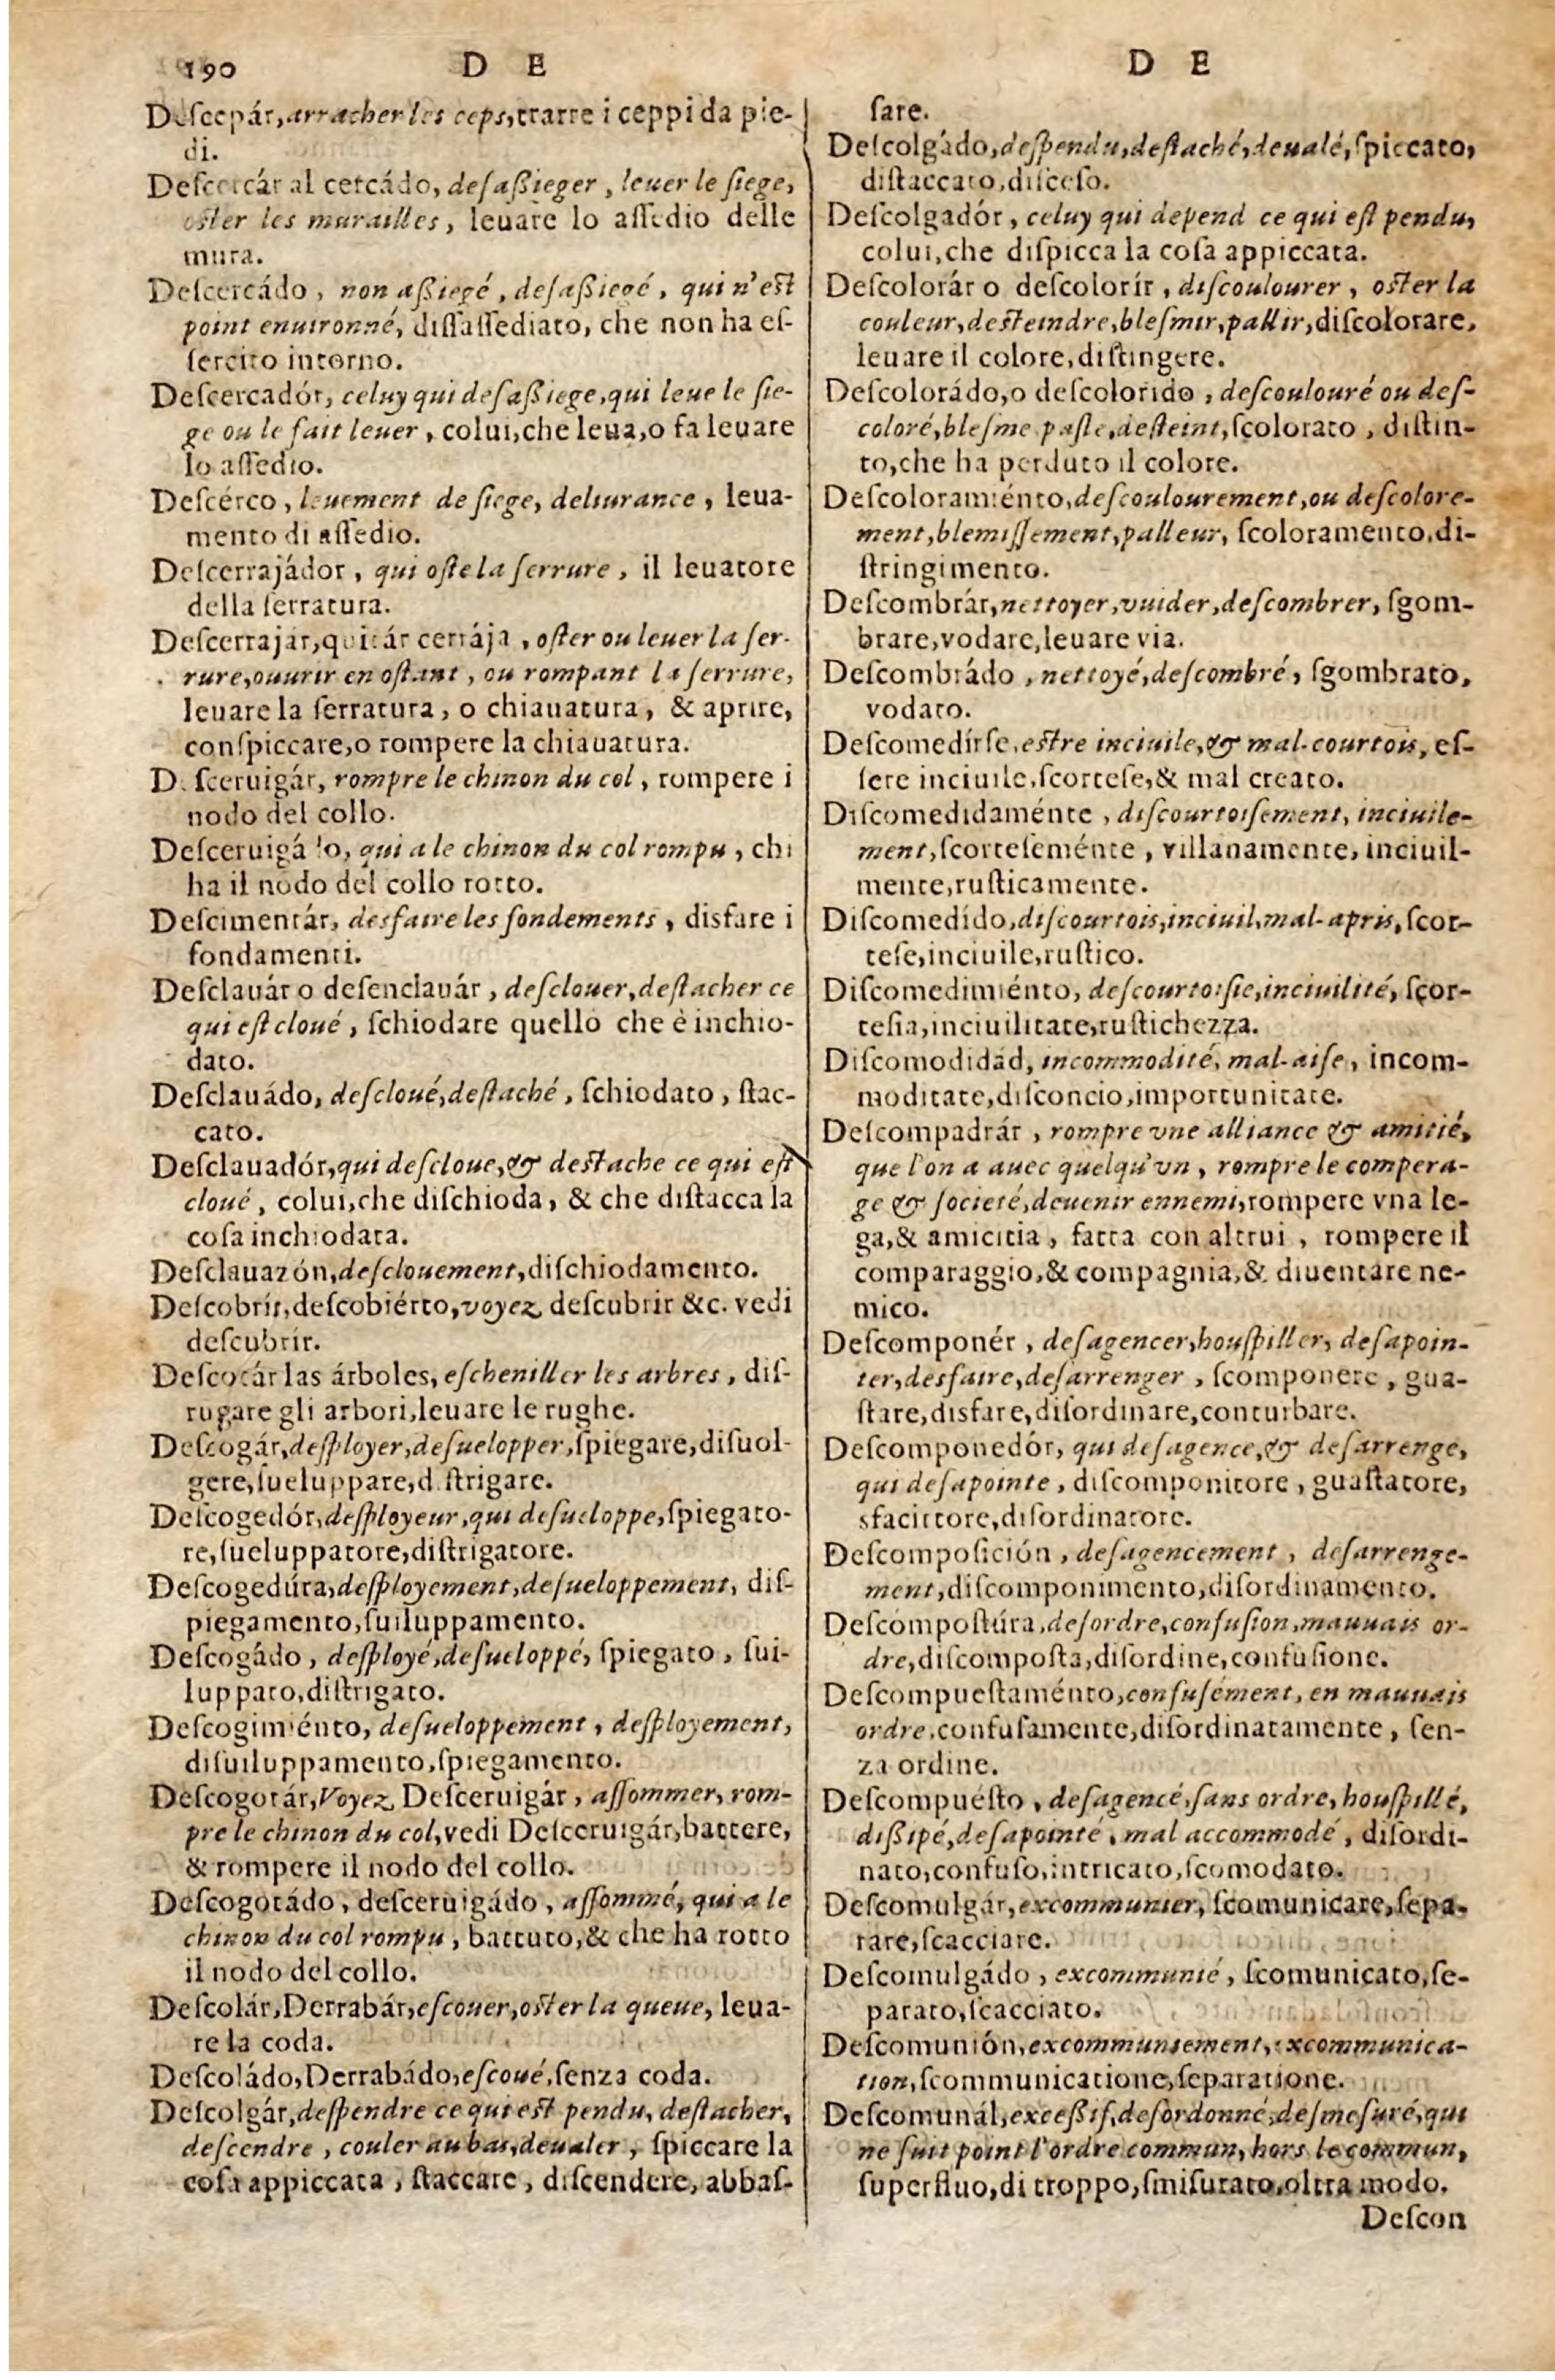 190 D E
Deſcepár, arracher les ceps, trarre i ceppi da pie-
di.
Deſcercár al cercádo, deſaßieger, leuer le ſiege,
oſter les murailles, leuare lo aſſedio delle
mura.
Deſcercádo, non aßiegé, deſaßiegé, qui n'eſt
point enuironné, diſſaſſediato, che non ha eſ-
ſercito intorno.
Deſcercadór, celuy qui deſaßiege, qui leue le ſie-
ge ou le fait leuer, colui, che leua, o fa leuare
lo aſſedio.
Deſcérco, leuement de ſiege, deliurance, leua-
mento di aſſedio.
Deſcerrajádor, qui oſte la ſerrure, il leuatore
della ſerratura.
Deſcerrajár, quitár cerrája, oſter ou leuer la ſer-
rure, ouurir en oſtant, ou rompant la ſerrure,
leuare la ſerratura, o chiauatura, & aprire,
conſpiccare, o rompere la chiauatura.
D. ſceruigár, rompre le chinon du col, rompere i
nodo del collo.
Deſceruigá lo, qui a le chinon du col rompu, chi
ha il nodo del collo rotto.
Deſcimentár, desfaire les fondements, disfare i
fondamenti.
Deſclauár o deſenclauár, deſclouer, deſtacher ce
qui eſt cloué, ſchiodare quello che è inchio-
dato.
Deſclauádo, deſcloué, deſtaché, ſchiodato, ſtac-
cato.
Deſclauadór, qui deſcloue, & deſtache ce qui eſt
cloué, colui, che diſchioda, & che diſtacca la
coſa inchiodata.
Deſclauazón, deſclouement, diſchiodamento.
Deſcobrír, deſcobiérto, voyez deſcubrir &c. vedi
deſcubrír.
Deſcocár las árboles, eſcheniller les arbres, diſ-
rugare gli arbori, leuare le rughe.
Deſcogér, deſployer, deſuelopper, ſpiegare, diſuol-
gere, ſueluppare, d. ſtrigare.
Deſcogedór, deſployeur, qui deſueloppe, ſpiegato-
re, ſueluppatore, diſtrigatore.
Deſcogedúra, deſployement, deſueloppement, diſ-
piegamento, ſuiluppamento.
Deſcogádo, deſployé, deſueloppé, ſpiegato, ſui-
luppato, diſtrigato.
Deſcogimiénto, deſueloppement, deſployement,
diſuiluppamento, ſpiegamento.
Deſcogotár, Voyez Deſceruigár, aſſommer, rom-
pre le chinon du col, vedi Deſceruigár, battere,
& rompere il nodo del collo.
Deſcogotádo, deſceruigádo, aſſommé, qui a le
chinon du col rompu, battuto, & che ha rotto
il nodo del collo.
Deſcolár, Derrabár, eſcouer, oſter la queue, leua-
re la coda.
Deſcoládo, Derrabádo, eſcoué, ſenza coda.
Deſcolgár, deſpendre ce qui eſt pendu, deſtacher,
deſcendre, couler au bas, deualer, ſpiccare la
coſa appiccata, ſtaccare, diſcendere, abbaſ-
D E
ſare.
Deſcolgádo, deſpendu, deſtaché, deualé, ſpiccato,
diſtaccato, diſceſo.
Deſcolgadór, celuy qui depend ce qui eſt pendu,
colui, che diſpicca la coſa appiccata.
Deſcolorár o deſcolorír, diſcoulourer, oſter la
couleur, deſteindre, bleſmir, pallir, diſcolorare,
leuare il colore, diſtingere.
Deſcolorádo, o deſcolorido, deſcoulouré ou deſ-
coloré, bleſme, paſle, deſteint, ſcolorato, diſtin-
to, che ha perduto il colore.
Deſcoloramiénto, deſcoulourement, ou deſcolore-
ment, blemiſſement, palleur, ſcoloramento, di-
ſtringimento.
Deſcombrár, nettoyer, vuider, deſcombrer, ſgom-
brare, vodare, leuare via.
Deſcombrádo, nettoyé, deſcombré, ſgombrato,
vodato.
Deſcomedírſe, eſtre inciuile, & mal-courtois, eſ-
ſere inciuile, ſcorteſe, & mal creato.
Diſcomedidaménte, diſcourtoiſement, inciuile-
ment, ſcorteſeménte, villanamente, inciuil-
mente, ruſticamente.
Diſcomedído, diſcourtois, inciuil, mal-apris, ſcor-
teſe, inciuile, ruſtico.
Diſcomedimiénto, deſcourtoiſie, inciuilité, ſcor-
teſia, inciuilitate, ruſtichezza.
Diſcomodidád, incommodité, mal-aiſe, incom-
moditate, diſconcio, importunitate.
Deſcompadrár, rompre vne alliance & amitié,
que l'on a auec quelqu'vn, rompre le compera-
ge & ſocieté, deuenir ennemi, rompere vna le-
ga, & amicitia, fatta con altrui, rompere il
comparaggio, & compagnia, & diuentare ne-
mico.
Deſcomponér, deſagencer, houſpiller, deſapoin-
ter, desfaire, deſarrenger, ſcomponere, gua-
ſtare, disfare, diſordinare, conturbare.
Deſcomponedór, qui deſagence, & deſarrenge,
qui deſapointe, diſcomponitore, guaſtatore,
sfacittore, diſordinatore.
Deſcompoſición, deſagencement, deſarrenge-
ment, diſcomponimento, diſordinamento.
Deſcompoſtúra, deſordre, confuſion, mauuais or-
dre, diſcompoſta, diſordine, confuſione.
Deſcompueſtaménto, confuſément, en mauuais
ordre, confuſamente, diſordinatamente, ſen-
za ordine.
Deſcompuéſto, deſagencé, ſans ordre, houſpillé,
dißipé, deſapointé, mal accommodé, diſordi-
nato, confuſo, intricato, ſcomodato.
Deſcomulgár, excommunier, ſcomunicare, ſepa-
rare, ſcacciare.
Deſcomulgádo, excommunié, ſcomunicato, ſe-
parato, ſcacciato.
Deſcomunión, excommuniement, excommunica-
tion, ſcommunicatione, ſeparatione.
Deſcomunál, exceßif, deſordonné, deſmeſuré, qui
ne ſuit point l'ordre commun, hors le commun,
ſuperfluo, di troppo, ſmiſurato, oltra modo.
Deſcon